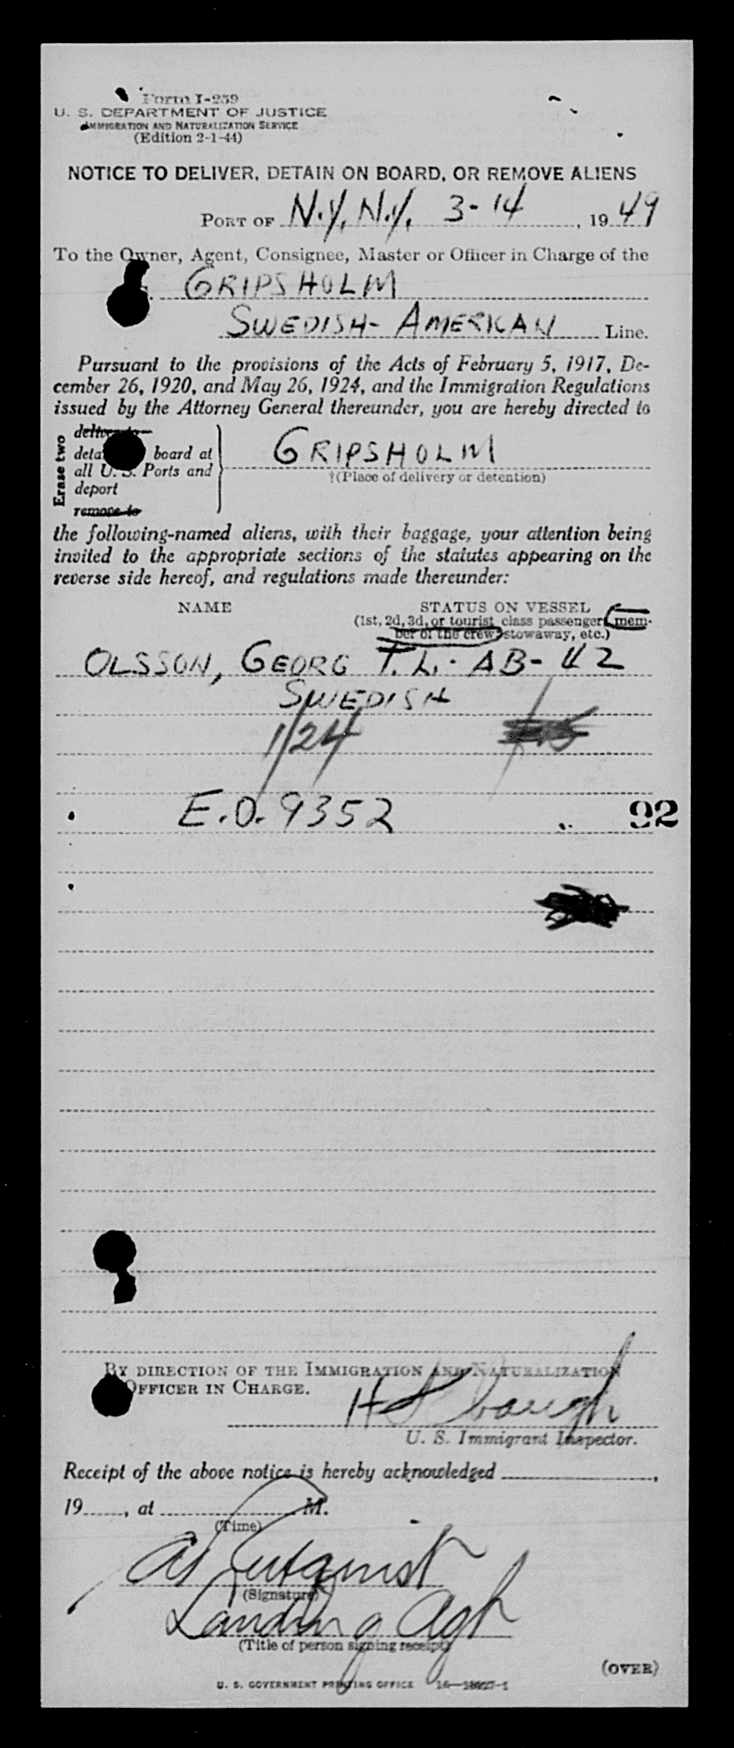 Form I-259
U. S. DEPARTMENT OF JUSTICE
IMMIGRATION AND NATURALIZATION SERVICE
(Edition 2-1-44)
NOTICE TO DELIVER, DETAIN ON BOARD, OR REMOVE ALIENS
PORT OF N.Y, N.Y. 3-14, 1949
To the Owner, Agent, Consignee, Master or Officer in Charge of the
GRIPSHOLM
SWEDISH-AMERICAN Line.
Pursuant to the provisions of the Acts of February 5, 1917, De-
cember 26, 1920, and May 26, 1924, and the Immigration Regulations
issued by the Attorney General thereunder, you are hereby directed to
Erase two
deliver to
board at
all U. S. Ports and
deport
remove to
GRIPSHOLM
†(Place of delivery or detention)
the following-named aliens, with their baggage, your attention being
invited to the appropriate sections of the statutes appearing on the
reverse side hereof, and regulations made thereunder:
NAME STATUS ON VESSEL
(1st, 2d, 3d, or tourist class passenger, mem-
ber of the crew, stowaway, etc.)
OLSSON, GEORG T. L. - AB- 42
SWEDISH
1/24
E.O. 9352 92
BY DIRECTION OF THE IMMIGRATION AND NATURALIZATION
OFFICER IN CHARGE.
U. S. Immigrant Inspector.
Receipt of the above notice is hereby acknowledged
19 , at M.
(Time)
(Signature)
Landing Agt
(Title of person signing receipt)
(OVER)
U. S. GOVERNMENT PRINTING OFFICE